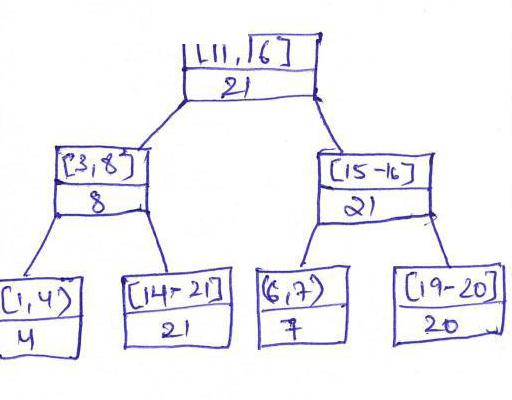 [11,16]
21
[3,8]
8
[15-16]
21
[1,4)
4
[14-21]
21
(6,7)
7
[19-20]
20